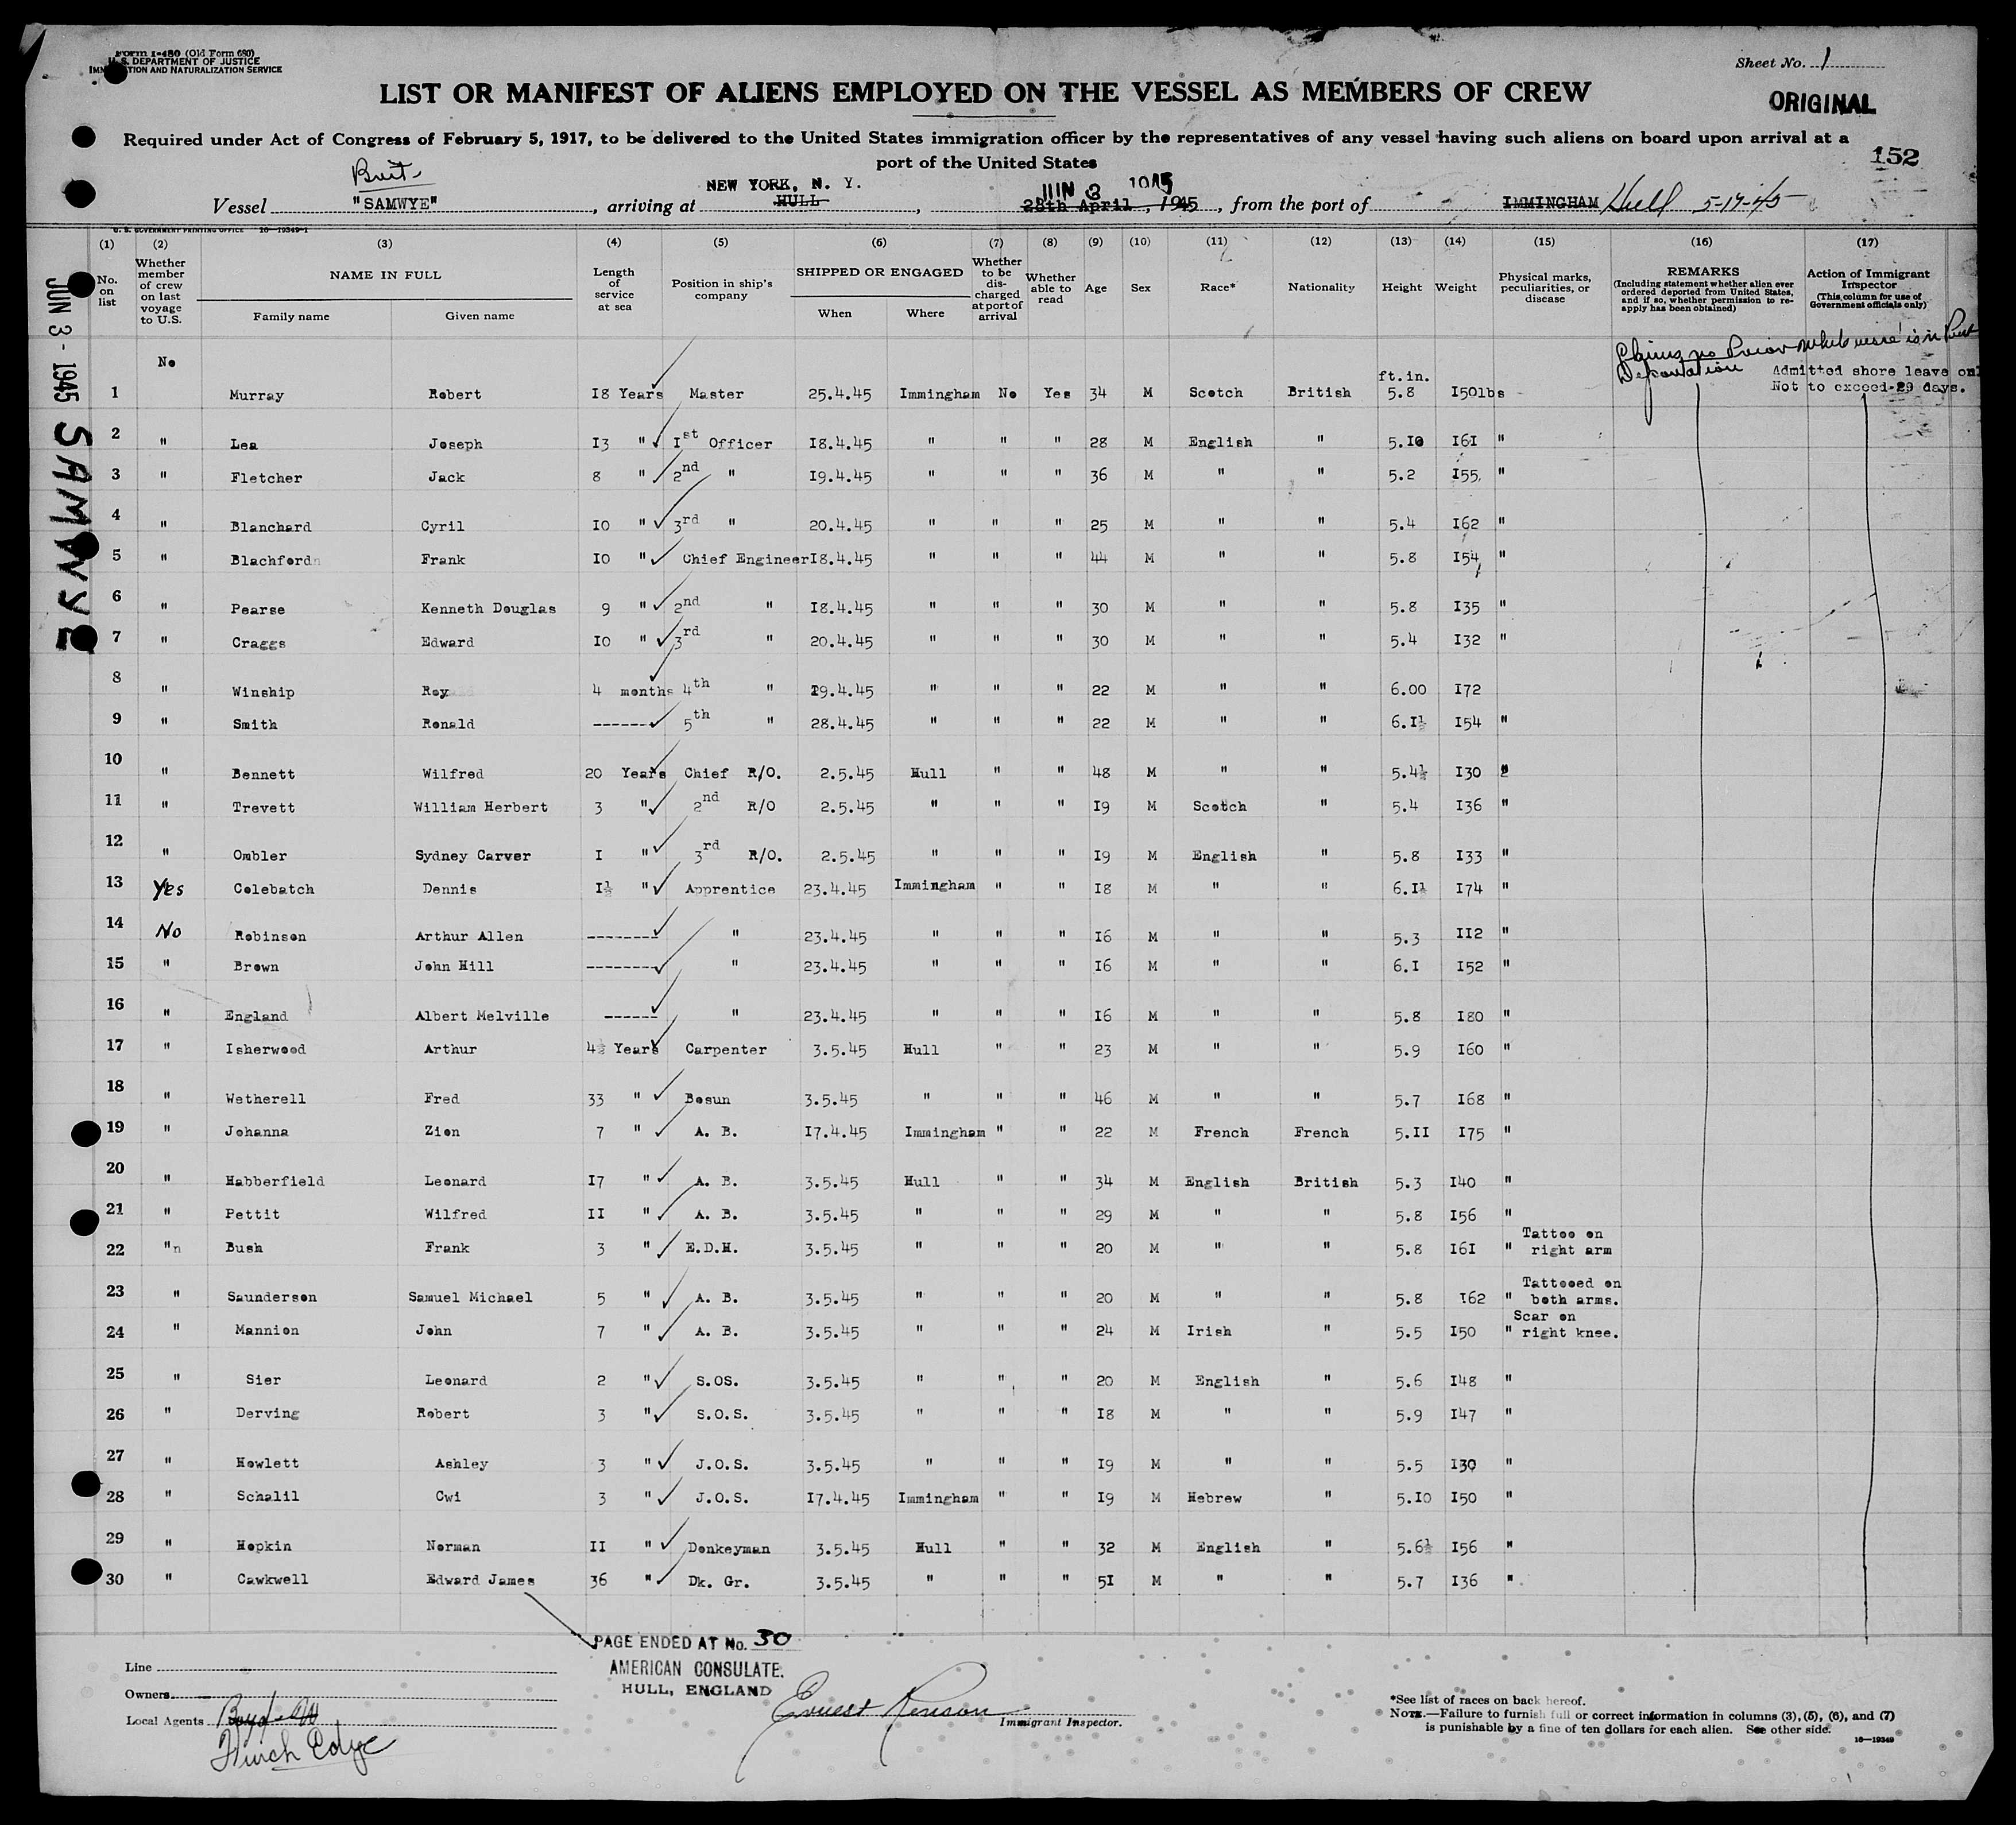 Form I-480 (Old Form 680)
U. S. DEPARTMENT OF JUSTICE
IMMIGRATION AND NATURALIZATION SERVICE
Sheet No. 1
LIST OR MANIFEST OF ALIENS EMPLOYED ON THE VESSEL AS MEMBERS OF CREW
ORIGINAL
Required under Act of Congress of February 5, 1917, to be delivered to the United States immigration officer by the representatives of any vessel having such aliens on board upon arrival at a
port of the United States
152
Brit.
NEW YORK, N. Y. JUN 3 1945
Vessel "SAMWYE", arriving at HULL, 28th April, 1945, from the port of IMMINGHAM Hull 5-17-45
U. S. GOVERNMENT PRINTING OFFICE 16—19349-1
(1) (2) (3) (4) (5) (6) (7) (8) (9) (10) (11) (12) (13) (14) (15) (16) (17)
No. on list
Whether member of crew on last voyage to U.S.
NAME IN FULL
Family name Given name
Length of service at sea
Position in ship's company
SHIPPED OR ENGAGED
When Where
Whether to be discharged at port of arrival
Whether able to read
Age Sex Race* Nationality Height Weight
Physical marks, peculiarities, or disease
REMARKS
(Including statement whether alien ever ordered deported from United States, and if so, whether permission to reapply has been obtained)
Action of Immigrant Inspector
(This column for use of Government officials only)
JUN 3 - 1945 SAMWYE
no Prior
Deportation
Admitted shore leave onl
Not to exceed 29 days.
ft.in.
1 No Murray Robert I8 Years Master 25.4.45 Immingham No Yes 34 M Scotch British 5.8 I50lbs
2 " Lea Joseph I3 " Ist Officer I8.4.45 " " " 28 M English " 5.I0 I6I "
3 " Fletcher Jack 8 " 2nd " I9.4.45 " " " 36 M " " 5.2 I55 "
4 " Blanchard Cyril I0 " 3rd " 20.4.45 " " " 25 M " " 5.4 I62 "
5 " Blachford Frank I0 " Chief Engineer I8.4.45 " " " 44 M " " 5.8 I54 "
6 " Pearse Kenneth Douglas 9 " 2nd " I8.4.45 " " " 30 M " " 5.8 I35 "
7 " Craggs Edward I0 " 3rd " 20.4.45 " " " 30 M " " 5.4 I32 "
8 " Winship Roy 4 months 4th " I9.4.45 " " " 22 M " " 6.00 I72
9 " Smith Ronald ------ 5th " 28.4.45 " " " 22 M " " 6.I½ I54 "
10 " Bennett Wilfred 20 Years Chief R/O. 2.5.45 Hull " " 48 M " " 5.4½ I30 "
11 " Trevett William Herbert 3 " 2nd R/O 2.5.45 " " " I9 M Scotch " 5.4 I36 "
12 " Ombler Sydney Carver I " 3rd R/O. 2.5.45 " " " I9 M English " 5.8 I33 "
13 Yes Colebatch Dennis I½ " Apprentice 23.4.45 Immingham " " I8 M " " 6.I½ I74 "
14 No Robinson Arthur Allen ------- " 23.4.45 " " " I6 M " " 5.3 II2 "
15 " Brown John Hill ------- " 23.4.45 " " " I6 M " " 6.I I52 "
16 " England Albert Melville ------ " 23.4.45 " " " I6 M " " 5.8 I80 "
17 " Isherwood Arthur 4½ Years Carpenter 3.5.45 Hull " " 23 M " " 5.9 I60 "
18 " Wetherell Fred 33 " Bosun 3.5.45 " " " 46 M " " 5.7 I68 "
19 " Johanna Zion 7 " A. B. I7.4.45 Immingham " " 22 M French French 5.II I75 "
20 " Habberfield Leonard I7 " A. B. 3.5.45 Hull " " 34 M English British 5.3 I40 "
21 " Pettit Wilfred II " A. B. 3.5.45 " " " 29 M " " 5.8 I56 "
22 " Bush Frank 3 " E.D.H. 3.5.45 " " " 20 M " " 5.8 I6I " Tattoo on right arm
23 " Saunderson Samuel Michael 5 " A. B. 3.5.45 " " " 20 M " " 5.8 I62 " Tattooed on both arms.
24 " Mannion John 7 " A. B. 3.5.45 " " " 24 M Irish " 5.5 I50 " Scar on right knee.
25 " Sier Leonard 2 " S.OS. 3.5.45 " " " 20 M English " 5.6 I48 "
26 " Derving Robert 3 " S.O.S. 3.5.45 " " " I8 M " " 5.9 I47 "
27 " Howlett Ashley 3 " J.O.S. 3.5.45 " " " I9 M " " 5.5 I30 "
28 " Schalil Cwi 3 " J.O.S. I7.4.45 Immingham " " I9 M Hebrew " 5.I0 I50 "
29 " Hopkin Norman II " Donkeyman 3.5.45 Hull " " 32 M English " 5.6½ I56 "
30 " Cawkwell Edward James 36 " Dk. Gr. 3.5.45 " " " 5I M " " 5.7 I36 "
PAGE ENDED AT No. 30
AMERICAN CONSULATE.
HULL, ENGLAND
Line
Owners
Local Agents
Ernest
Immigrant Inspector.
*See list of races on back hereof.
NOTE.—Failure to furnish full or correct information in columns (3), (5), (6), and (7)
is punishable by a fine of ten dollars for each alien. See other side.
16—19349